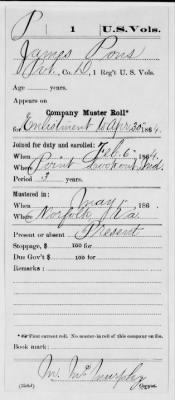 P | 1 | U.S. Vols.
James Pons
Pvt., Co. D, 1 Reg't U. S. Vols.
Age years.
Appears on
Company Muster Roll*
for Enlistment to Apr 30, 1864.
Joined for duty and enrolled:
When Feb. 6, 1864.
Where Point Lookout Md.
Period 3 years.
Mustered in:
When May 1, 186 .
Where Norfolk, Va.
Present or absent Present
Stoppage, $ 100 for
Due Gov't $ 100 for
Remarks:
*First current roll. No muster-in roll of this company on file.
Book mark:
M. Mc Murphy
Copyist.